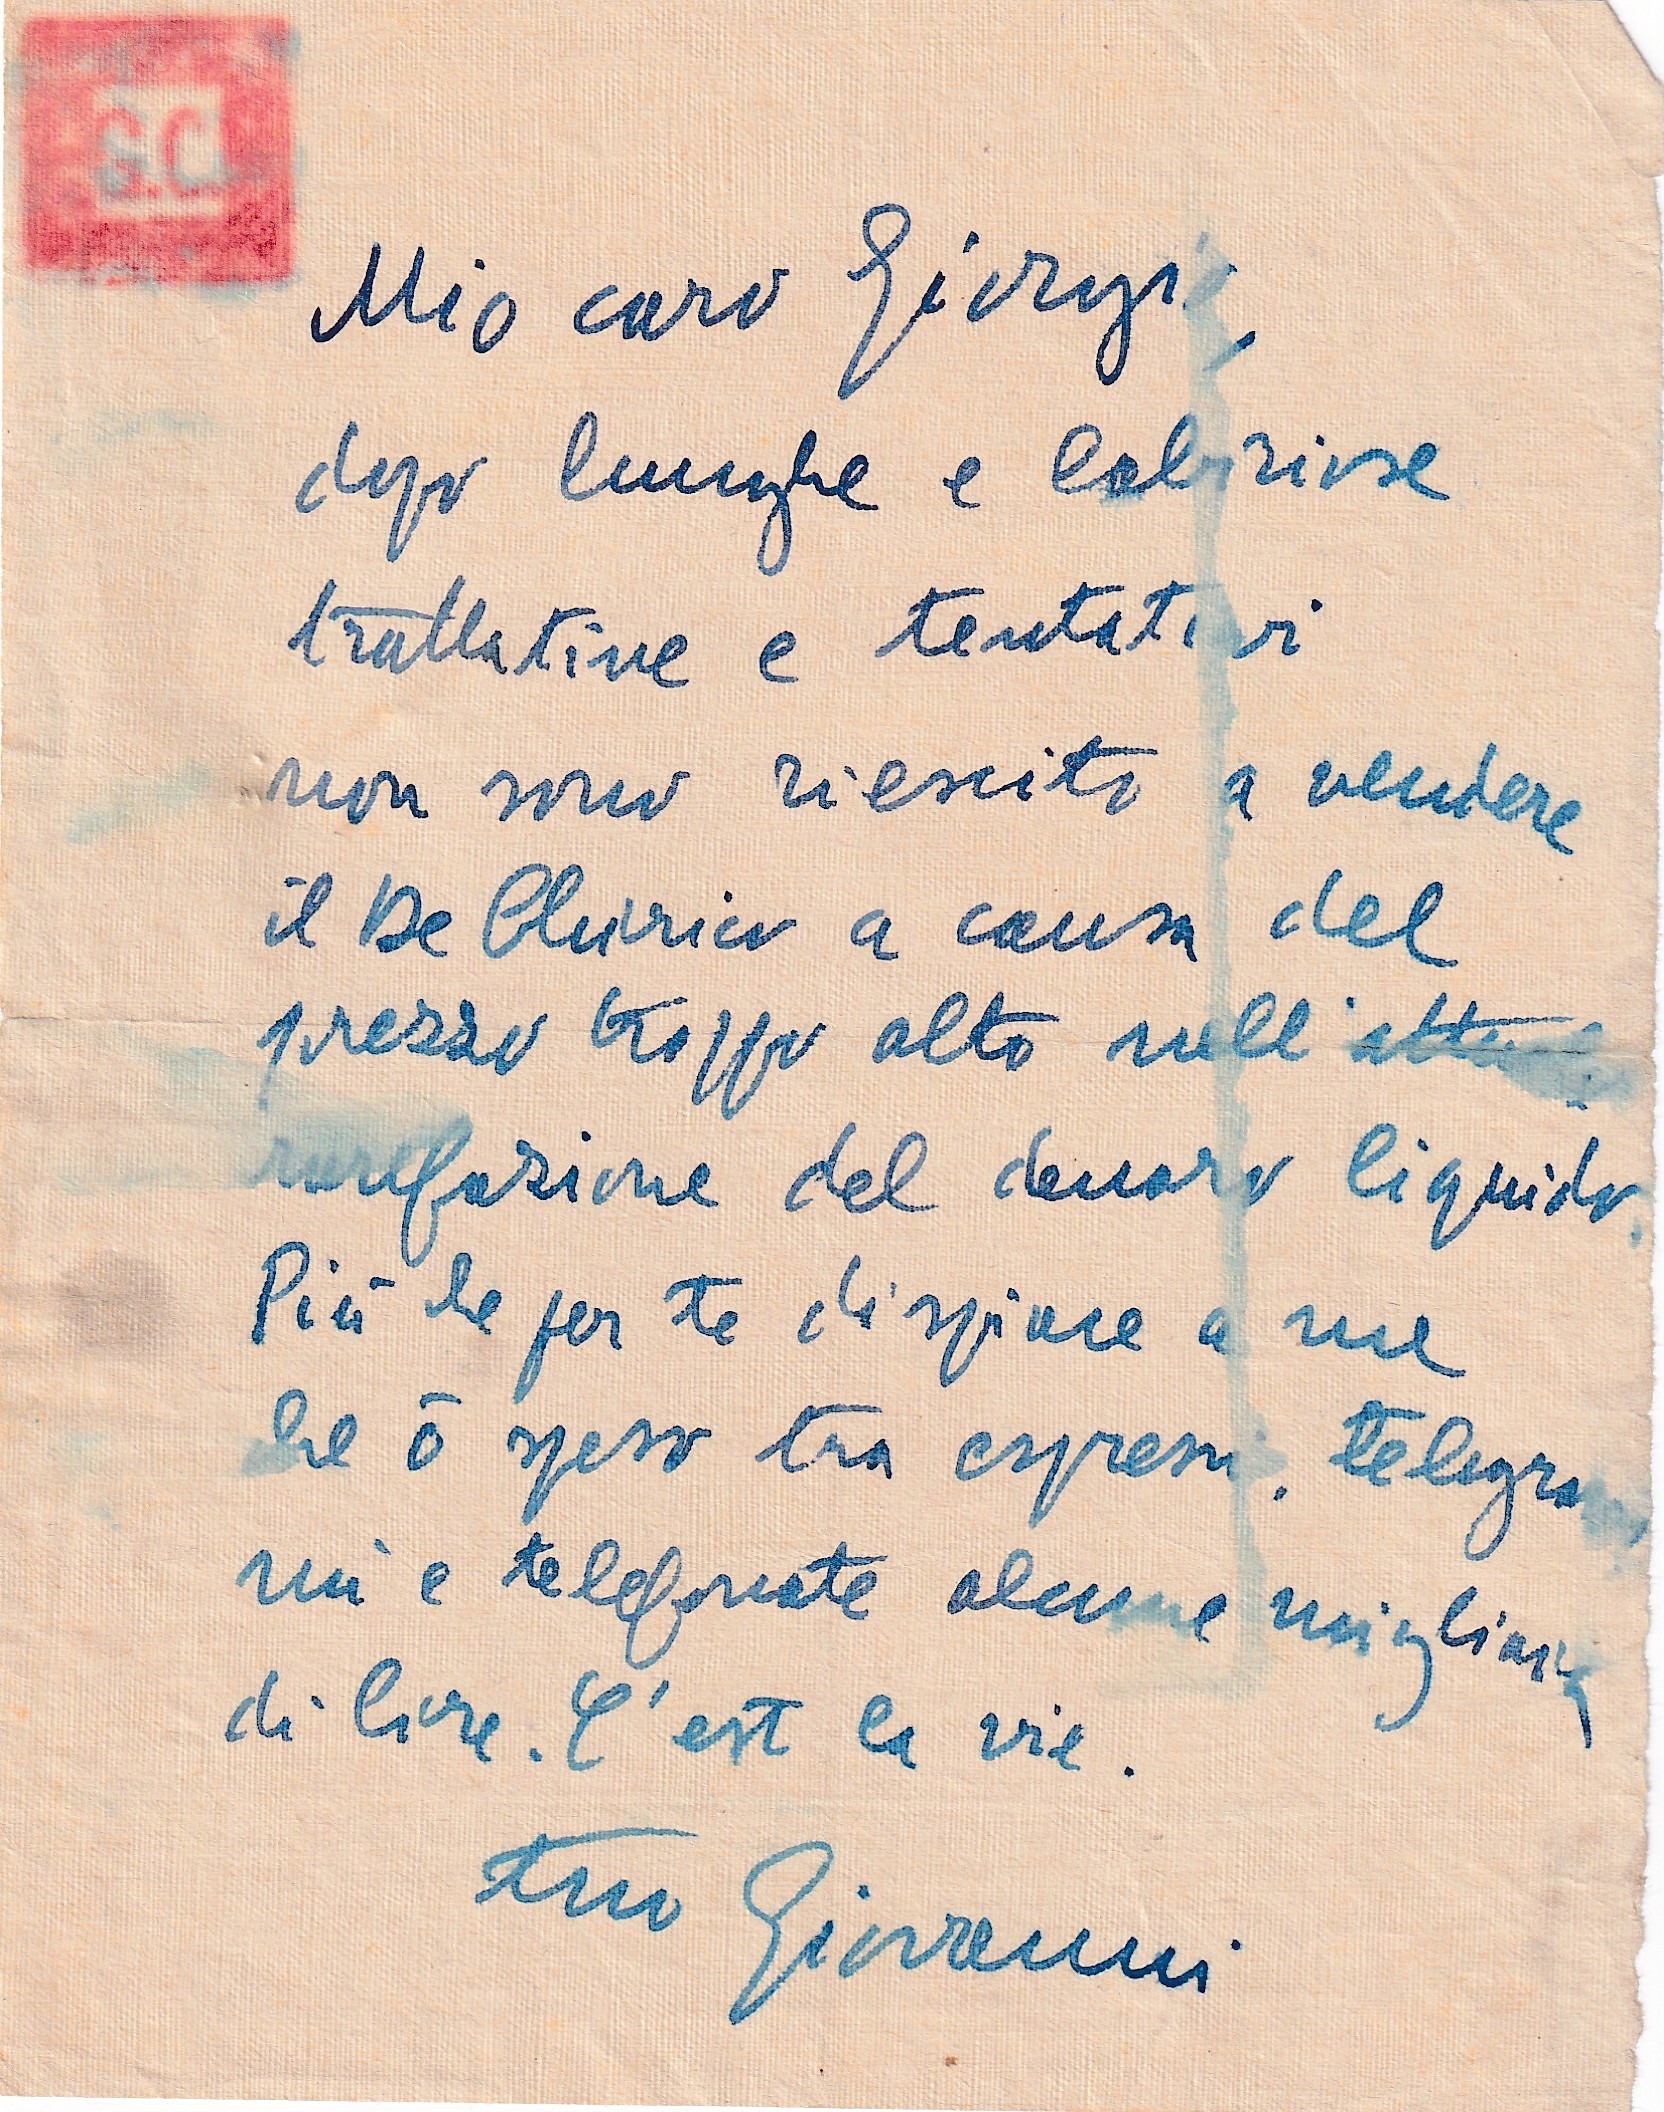 G.C.
Mio caro Giorgio,
dopo lunghe e laboriose
trattative e tentativi
non sono riescito a vendere
il De Chirico a causa del
prezzo troppo alto nell'attuale
rarefazione del denaro liquido.
Più che per te dispiace a me
che ò speso tra espressi, telegram,
mi e telefonate alcune migliaia
di lire. C'est la vie.
tuo Giovanni